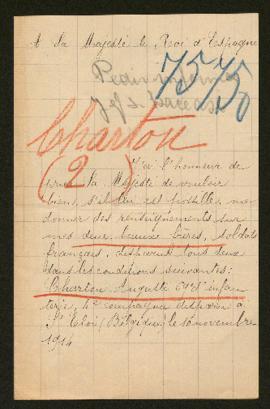 A Sa Majesté le Roi d'Espagne
7575
Pedir informes
Charton
(2)
J'ai l'honneur de
Sa Majesté de vouloir
bien, s'il lui est possible, me
donner des renseignements sur
mes deux beaux frères, soldats
français, disparus tous deux
dans les conditions suivantes:
Charton Auguste d'infan
terie, compagnie disparu à
St Eloi (Belgique) le novembre
1914